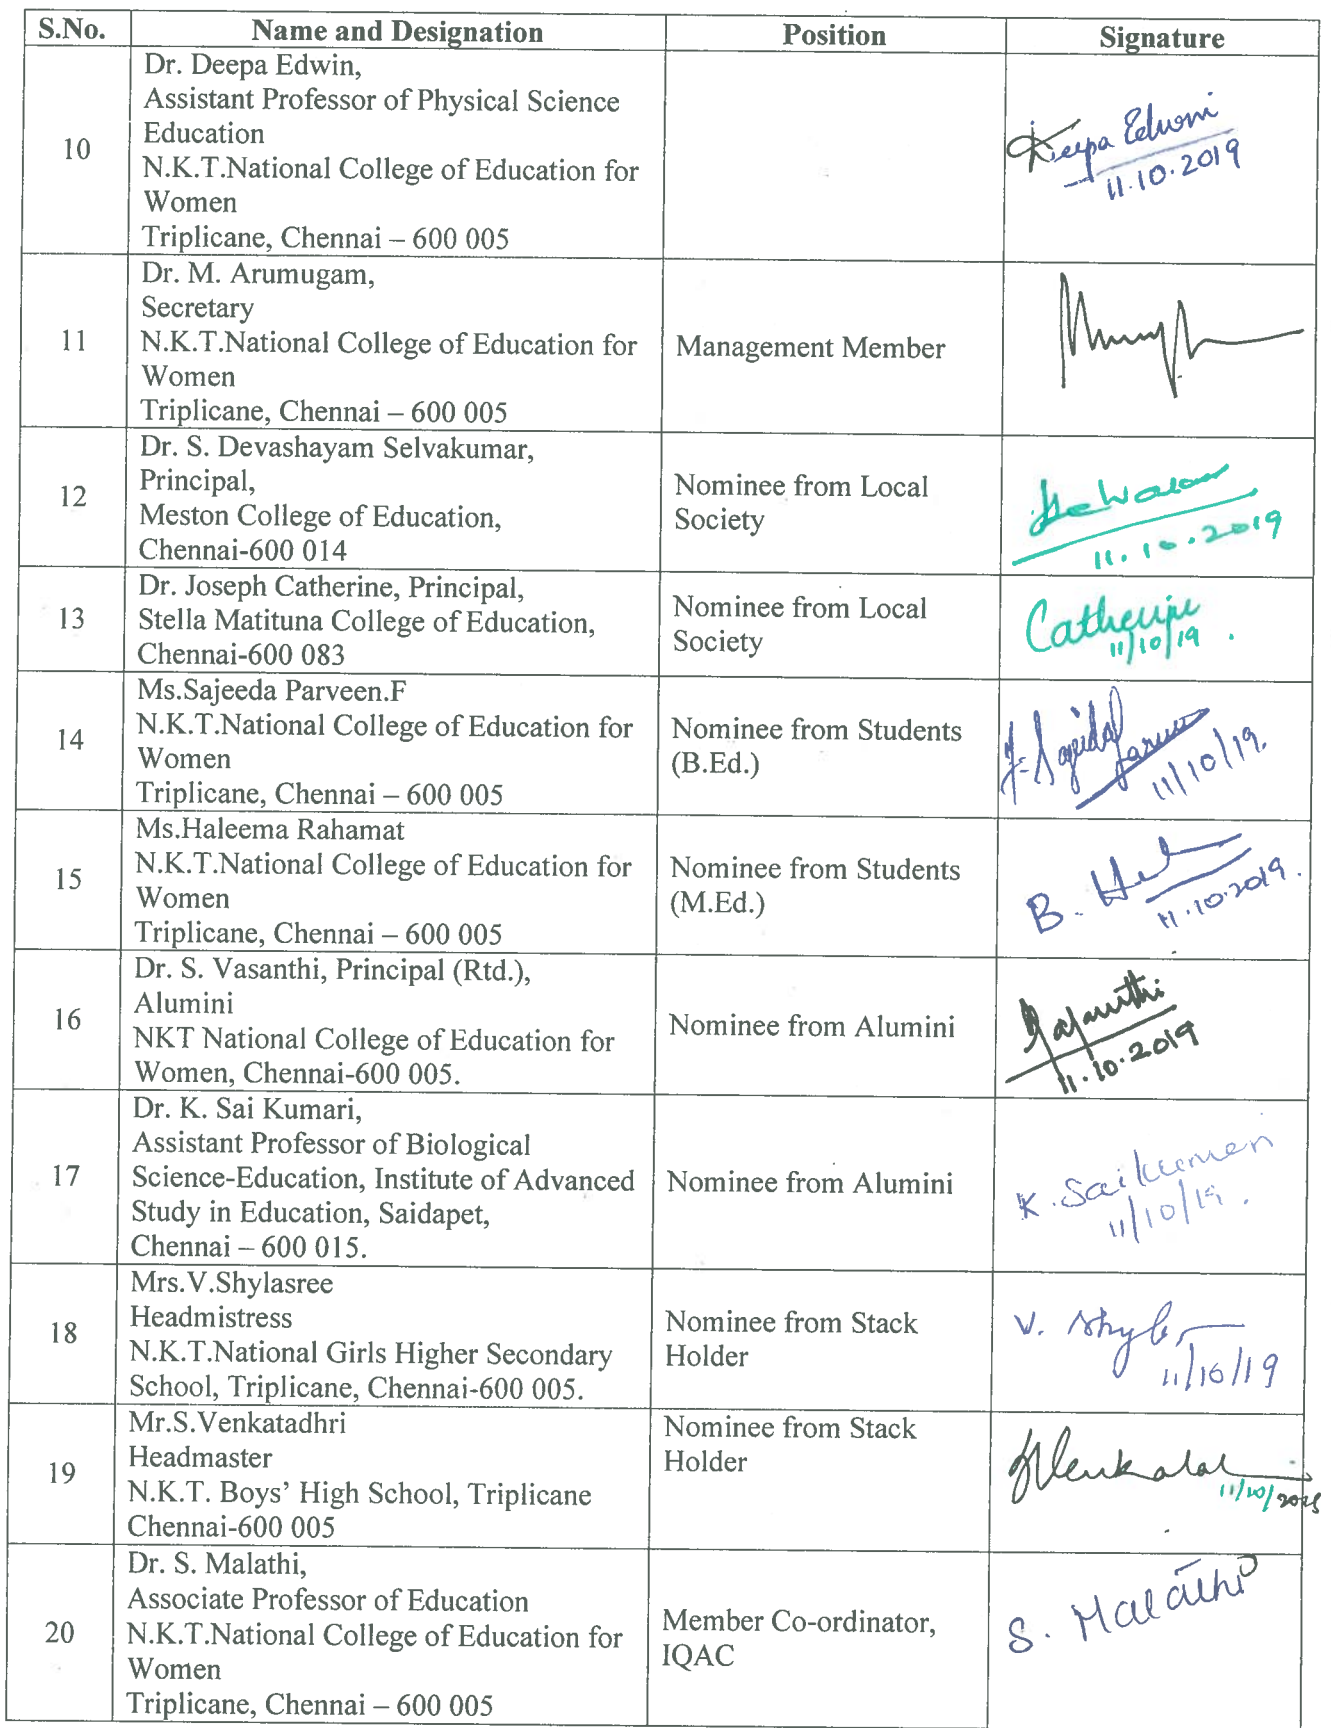 S.No. Name and Designation Position Signature
10
Dr. Deepa Edwin,
Assistant Professor of Physical Science
Education
N.K.T.National College of Education for
Women
Triplicane, Chennai – 600 005
Deepa Edwin
11.10.2019
11
Dr. M. Arumugam,
Secretary
N.K.T.National College of Education for
Women
Triplicane, Chennai – 600 005
Management Member
12
Dr. S. Devashayam Selvakumar,
Principal,
Meston College of Education,
Chennai-600 014
Nominee from Local
Society
11.10.2019
13
Dr. Joseph Catherine, Principal,
Stella Matituna College of Education,
Chennai-600 083
Nominee from Local
Society
Catherine
11/10/19.
14
Ms.Sajeeda Parveen.F
N.K.T.National College of Education for
Women
Triplicane, Chennai – 600 005
Nominee from Students
(B.Ed.)
11/10/19.
15
Ms.Haleema Rahamat
N.K.T.National College of Education for
Women
Triplicane, Chennai – 600 005
Nominee from Students
(M.Ed.)
B.
11.10.2019.
16
Dr. S. Vasanthi, Principal (Rtd.),
Alumini
NKT National College of Education for
Women, Chennai-600 005.
Nominee from Alumini
11.10.2019
17
Dr. K. Sai Kumari,
Assistant Professor of Biological
Science-Education, Institute of Advanced
Study in Education, Saidapet,
Chennai – 600 015.
Nominee from Alumini
K. Saikumari
11/10/19.
18
Mrs.V.Shylasree
Headmistress
N.K.T.National Girls Higher Secondary
School, Triplicane, Chennai-600 005.
Nominee from Stack
Holder
V.
11/10/19
19
Mr.S.Venkatadhri
Headmaster
N.K.T. Boys' High School, Triplicane
Chennai-600 005
Nominee from Stack
Holder
11/10/
20
Dr. S. Malathi,
Associate Professor of Education
N.K.T.National College of Education for
Women
Triplicane, Chennai – 600 005
Member Co-ordinator,
IQAC
S. Malathi